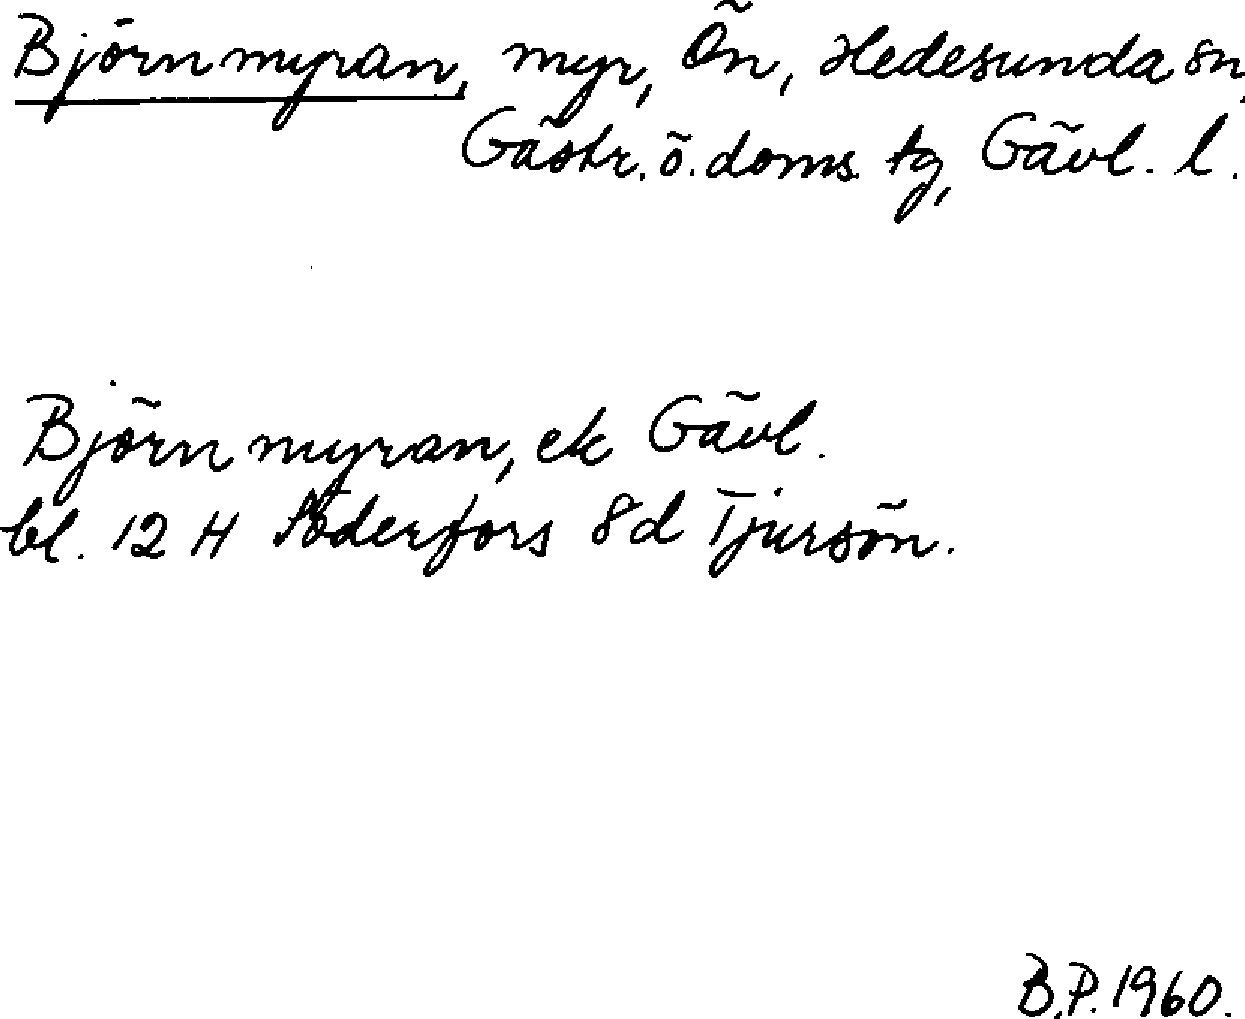 Björnmyran, myr, Ön, Hedesunda sn,
Gästr. ö. doms. tg, Gävl. l.
Björnmyran, ek Gävl.
bl. 12 H Söderfors 8d Tjursön.
B.P. 1960.